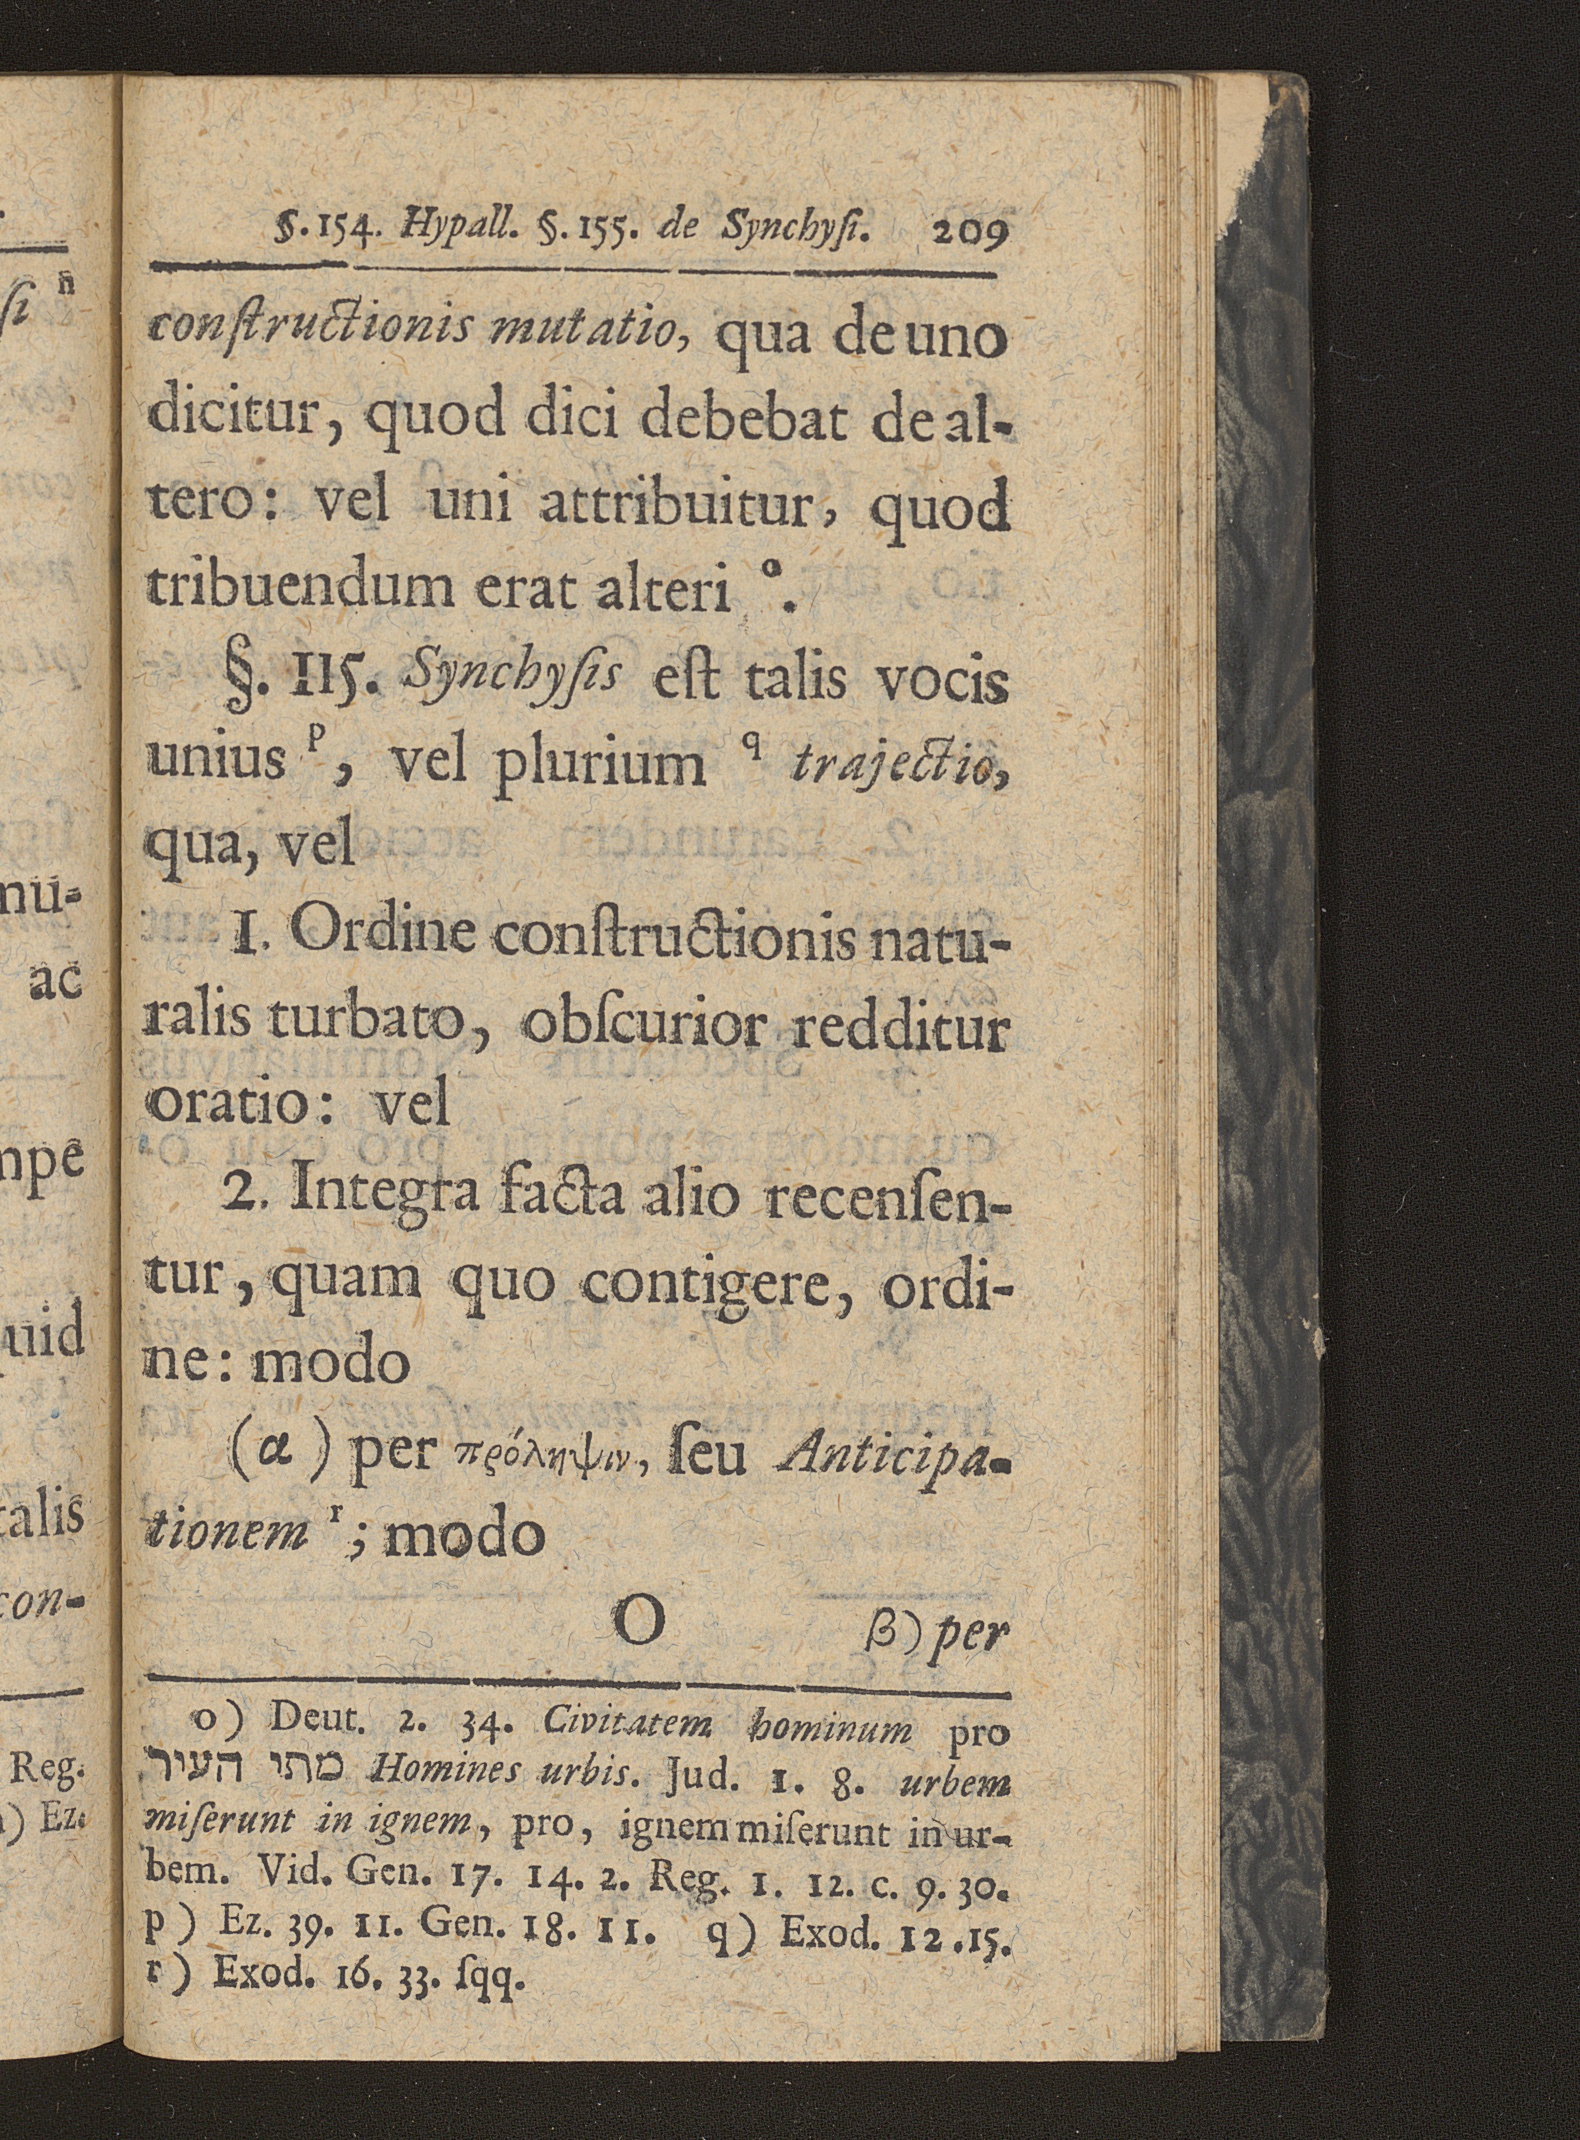 §. 154. Hypall. §. 155. de Synchyſi. 209
conſtructionis mutatio, qua de uno
dicitur, quod dici debebat de al-
tero: vel uni attribuitur, quod
tribuendum erat alteri º.
§. 115. Synchyſis eſt talis vocis
unius ᵖ, vel plurium q trajectio,
qua, vel
1. Ordine conſtructionis natu-
ralis turbato, obſcurior redditur
oratio: vel
2. Integra facta alio recenſen-
tur, quam quo contigere, ordi-
ne: modo
(α) per πρόληψιν, ſeu Anticipa-
tionem ʳ; modo
O β) per
o) Deut. 2. 34. Civitatem hominum pro
מתי העיר Homines urbis. Jud. 1. 8. urbem
miſerunt in ignem, pro, ignem miſerunt in ur-
bem. Vid. Gen. 17. 14. 2. Reg. 1. 12. c. 9. 30.
p) Ez. 39. 11. Gen. 18. 11. q) Exod. 12. 15.
r) Exod. 16. 33. ſqq.